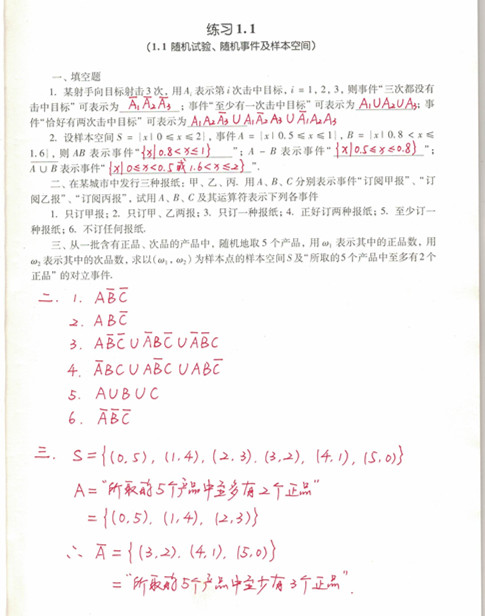 练习 1.1
(1.1 随机试验、随机事件及样本空间)
一、填空题
1. 某射手向目标射击3次, 用 Aᵢ 表示第 i 次击中目标, i = 1, 2, 3, 则事件“三次都没有
击中目标”可表示为 A̅₁A̅₂A̅₃ ; 事件“至少有一次击中目标”可表示为 A₁∪A₂∪A₃; 事
件“恰好有两次击中目标”可表示为 A₁A₂A̅₃∪A₁A̅₂A₃∪A̅₁A₂A₃
2. 设样本空间 S = {x|0 ≤ x ≤ 2}, 事件 A = {x|0.5 ≤ x ≤ 1}, B = {x|0.8 < x ≤
1.6}, 则 AB 表示事件“{x|0.8<x≤1}”; A - B 表示事件“{x|0.5≤x≤0.8}”;
A ∪ B 表示事件“{x|0≤x<0.5或1.6<x≤2}”.
二、在某城市中发行三种报纸: 甲、乙、丙. 用 A、B、C 分别表示事件“订阅甲报”、“订
阅乙报”、“订阅丙报”, 试用 A、B、C 及其运算符表示下列各事件
1. 只订甲报; 2. 只订甲、乙两报; 3. 只订一种报纸; 4. 正好订两种报纸; 5. 至少订一
种报纸; 6. 不订任何报纸.
三、从一批含有正品、次品的产品中, 随机地取 5 个产品, 用 ω₁ 表示其中的正品数, 用
ω₂ 表示其中的次品数, 求以(ω₁, ω₂) 为样本点的样本空间 S 及“所取的 5 个产品中至多有 2 个
正品”的对立事件.
二. 1. AB̅C̅
2. ABC̅
3. AB̅C̅∪A̅BC̅∪A̅B̅C
4. A̅BC∪AB̅C∪ABC̅
5. A∪B∪C
6. A̅B̅C̅
三. S={(0,5), (1,4), (2,3), (3,2), (4,1), (5,0)}
A=“所取的5个产品中至多有2个正品”
={(0,5), (1,4), (2,3)}
∴ A̅={(3,2), (4,1), (5,0)}
=“所取的5个产品中至少有3个正品”.